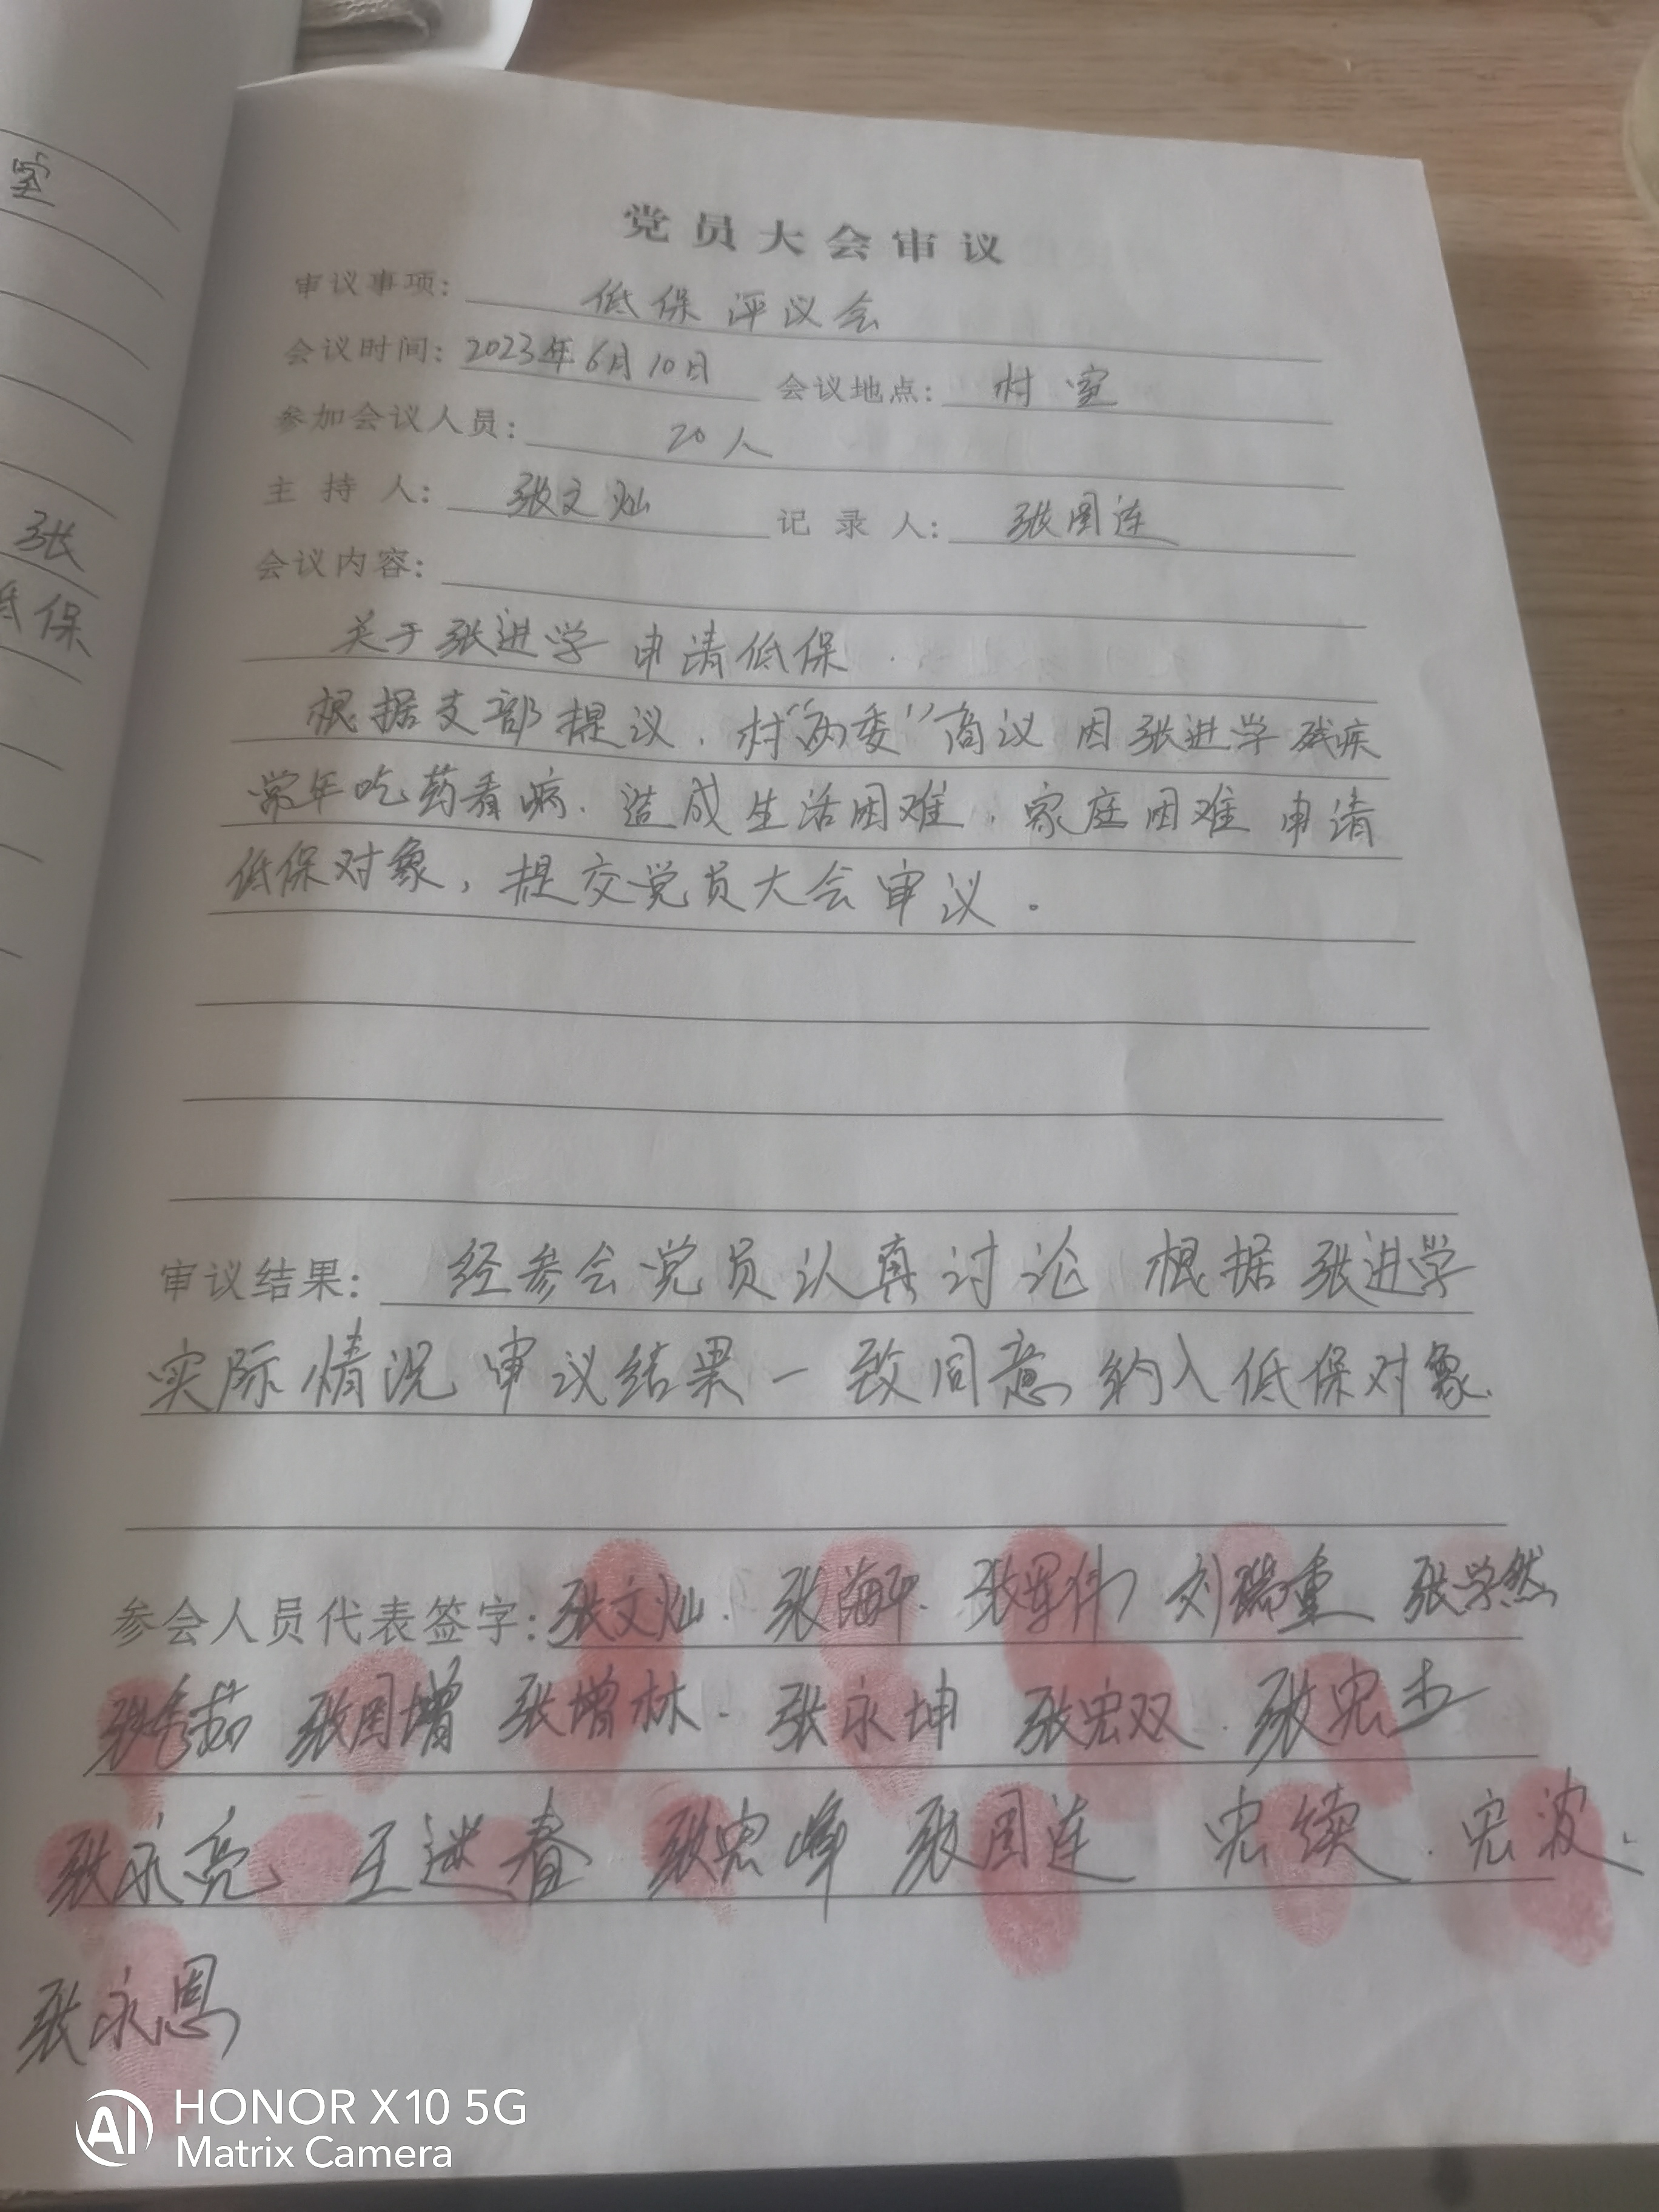 党员大会审议
审议事项: 低保评议会
会议时间: 2023年6月10日 会议地点: 村室
参加会议人员: 20人
主持人: 张文灿 记录人: 张国连
会议内容:
关于张进学申请低保
根据支部提议,村“两委”商议因张进学残疾
常年吃药看病.造成生活困难,家庭困难申请
低保对象,提交党员大会审议.
审议结果: 经参会党员认真讨论 根据张进学
实际情况审议结果一致同意纳入低保对象.
参会人员代表签字: 张文灿. 张海平. 张军伟 刘瑞重 张学然
张秀茹 张国增 张增林. 张永坤 张宏双. 张宏杰
张永亮 王进春 张宏峰 张国连 宏续. 宏波.
张永恩
室
张
低保
AI HONOR X10 5G
Matrix Camera